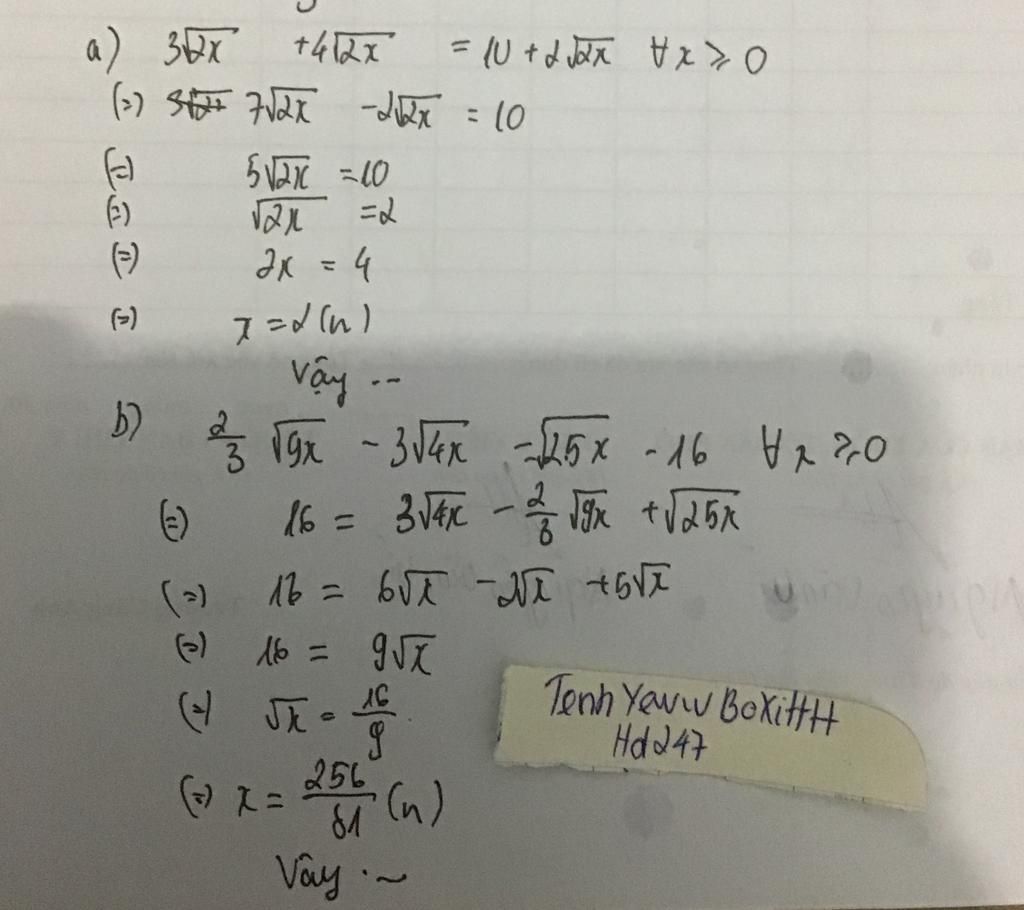 a) 3√2x + 4√2x = 10 + 2√2x ∀x ≥ 0
(=) 7√2x - 2√2x = 10
(=) 5√2x = 10
(=) √2x = 2
(=) 2x = 4
(=) x = 2 (n)
Vậy ..
b) 2/3 √9x - 3√4x = √25x - 16 ∀x ≥ 0
(=) 16 = 3√4x - 2/3 √9x + √25x
(=) 16 = 6√x - 2√x + 5√x
(=) 16 = 9√x
(=) √x = 16/9
(=) x = 256/81 (n)
Vậy .~
Tenh Yeww BoXiHH
Hd247